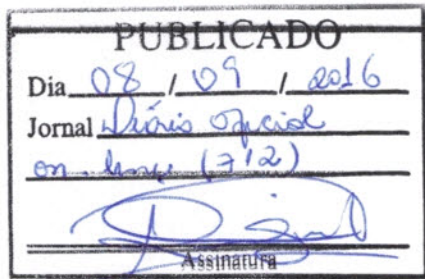 PUBLICADO
Dia 08 / 09 / 2016
Jornal Diário Oficial
on (712)
Assinatura